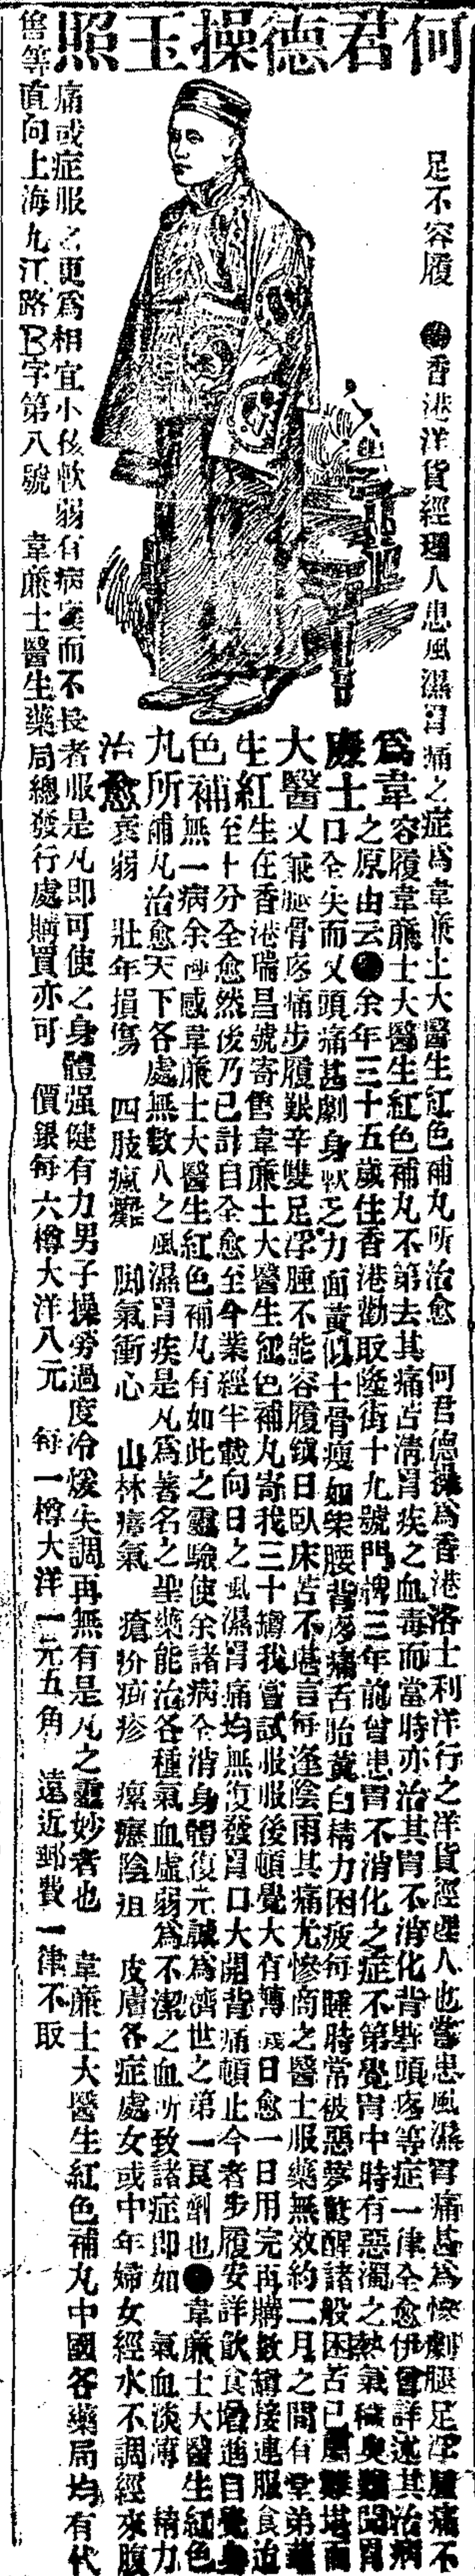 何君德操玉照
足不容履　●香港洋貨經理人患風濕胃痛之症爲韋廉士大醫生紅色補丸所治愈　何君德操爲香港洛士利洋行之洋貨經理人也嘗患風濕胃痛甚爲慘劇腿足浮腫痛不
爲韋廉士大醫生紅色補丸所治愈
容履韋廉士大醫生紅色補丸不第去其痛苦清胃疾之血毒而當時亦治其胃不消化背脊頭疼等症一律全愈伊曾詳述其治病
之原由云●余年三十五歲住香港勸取隆街十九號門牌三年前曾患胃不消化之症不第覺胃中時有惡濁之熱氣穢臭難聞胃
口全失而又頭痛甚劇身軟乏力面黃似土骨瘦如柴腰背疼痛舌胎黃白精力困疲每睡時常被惡夢驚醒諸般困苦已屬難堪而
又兼腿骨疼痛步履艱辛雙足浮腫不能容履鎮日臥床苦不堪言每逢陰雨其痛尤慘商之醫士服藥無效約二月之間有堂弟
生在香港瑞昌號寄售韋廉士大醫生紅色補丸寄我三十罇我嘗試服服後頓覺大有轉機日愈一日用完再購數罇接連服食迨
至十分全愈然後乃已計自全愈至今業經半載向日之風濕胃痛均無復發胃口大開背痛頓止今者步履安詳飲食增進自覺身
無一病余極感韋廉士大醫生紅色補丸有如此之靈驗使余諸病全消身體復元誠爲濟世之第一良劑也●韋廉士大醫生紅色
補丸治愈天下各處無數人之風濕胃疾是丸爲著名之聖藥能治各種氣血虛弱爲不潔之血所致諸症即如　氣血淡薄　精力
衰弱　壯年損傷　四肢瘋癱　脚氣衝心　山林瘴氣　瘡疥疵疹　瘰癧陰疽　皮膚各症處女或中年婦女經水不調經來腹
痛或症服之更爲相宜小孩軟弱有病實而不長者服是丸即可使之身體强健有力男子操勞過度冷煖失調再無有是丸之靈妙者也　韋廉士大醫生紅色補丸中國各藥局均有代
售等直向上海九江路B字第八號　韋廉士醫生藥局總發行處購買亦可　價銀每六樽大洋八元　每一樽大洋一元五角　遠近郵費一律不取